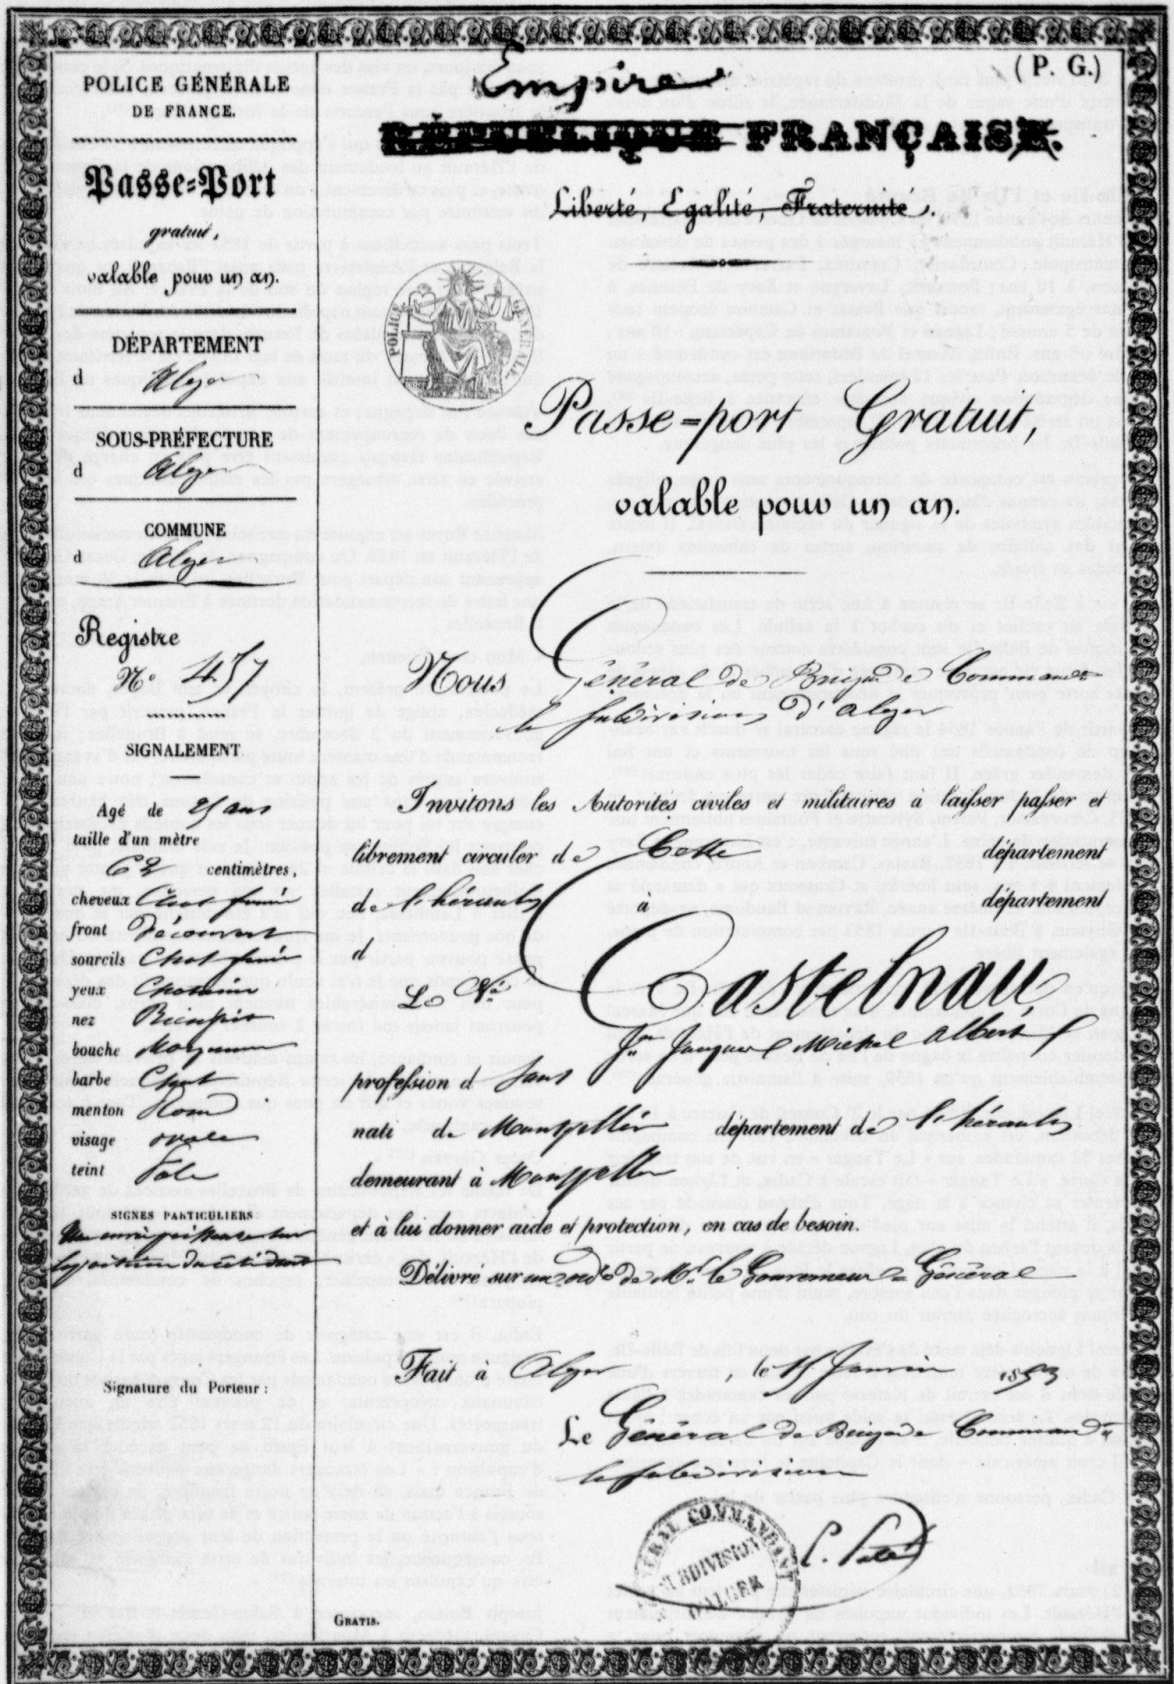 POLICE GÉNÉRALE
DE FRANCE.
Passe=Port
gratuit,
valable pour un an.
DÉPARTEMENT
d Alger
SOUS-PRÉFECTURE
d Alger
COMMUNE
d Alger
Registre
N° 457
SIGNALEMENT
Agé de 25 ans
taille d'un mètre
62 centimètres,
cheveux Chat foncé
front Découvert
sourcils Chat foncé
yeux
nez Bien fait
bouche Moyenne
barbe Chat
menton Rond
visage ovale
teint Pâle
SIGNES PARTICULIERS
Signature du Porteur :
(P. G.)
Empire
RÉPUBLIQUE FRANÇAISE.
Liberté, Egalité, Fraternité.
POLICE GÉNÉRALE
Passe=port Gratuit,
valable pour un an.
Nous Général de Brigade Commandt
la subdivision d'Alger
Invitons les Autorités civiles et militaires à laisser passer et
librement circuler de Cette département
de l'hérault à département
d
Le Castelnau
Jn Jacques Michel Albert
profession d Sans
natif de Montpellier département de l'hérault
demeurant à Montpellier
et à lui donner aide et protection, en cas de besoin.
Délivré sur ordre de Mr. le Gouverneur Général
Fait à Alger, le 15 Janvier 1853
Le Général de Brigade Commandt
la subdivision
GÉNÉRAL COMMANDANT
SUBDIVISION
D'ALGER
GRATIS.